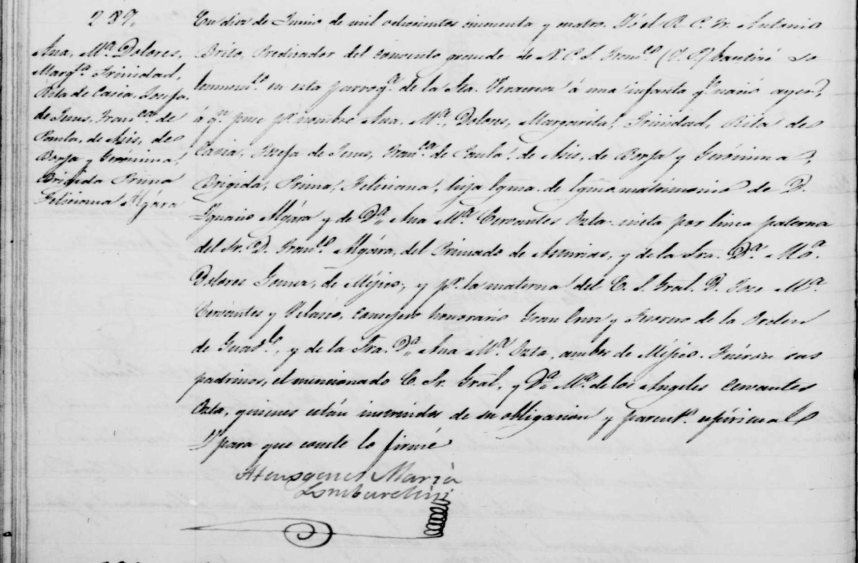 287.
Ana, Mª. Dolores,
Margª. Trinidad,
Rita de Casia, Josefa
de Jesus, Franᶜᵃ de
Paula, de Asis, de
Borja y Gerónima,
Brigida Prima
Feliciana Algára
En dia de Junio de mil ochocientos cincuenta y cuatro. Yó el R. P. Fr. Antonio
Brito, Predicador del convento grande de N. P. S. Franᶜº (V. P.) bautizé so
lemnemᵗᵉ en esta parroqª. de la Sta. Veracruz á una infanta qᵉ nació ayer,
á qⁿ puse pʳ nombre Ana, Mª. Dolores, Margarita, Trinidad, Rita de
Casia, Josefa de Jesus, Franᶜᵃ de Paula, de Asis, de Borja y Gerónima,
Brigida, Prima, Feliciana, hija lgma. de lgmo matrimonio de D.
Ygnacio Algára y de Dª. Ana Mª. Cervantes Ozta. nieta por linea paterna
del Sr. D. Franᶜº Algára, del Princado de Asturias, y de la Sra. Dª. Mª.
Dolores Gomez, de Méjico, y pʳ. la materna del E. S. Gral. D. Jose Mª.
Cervantes y Velasco, consejero honorario Gran Cruz y de la Orden
de Guadᵉ, y de la Sra. Dª. Ana Mª. Ozta, ambos de Méjico. Fuéron sus
padrinos, el mencionado E. Sr. Gral, y Dª. Mª. de los Angeles Cervantes
Ozta, quienes están instruidos de su obligacion y parentᵒ. espiritual
Y para que conste lo firmé
Atenogenes María
Lombardini